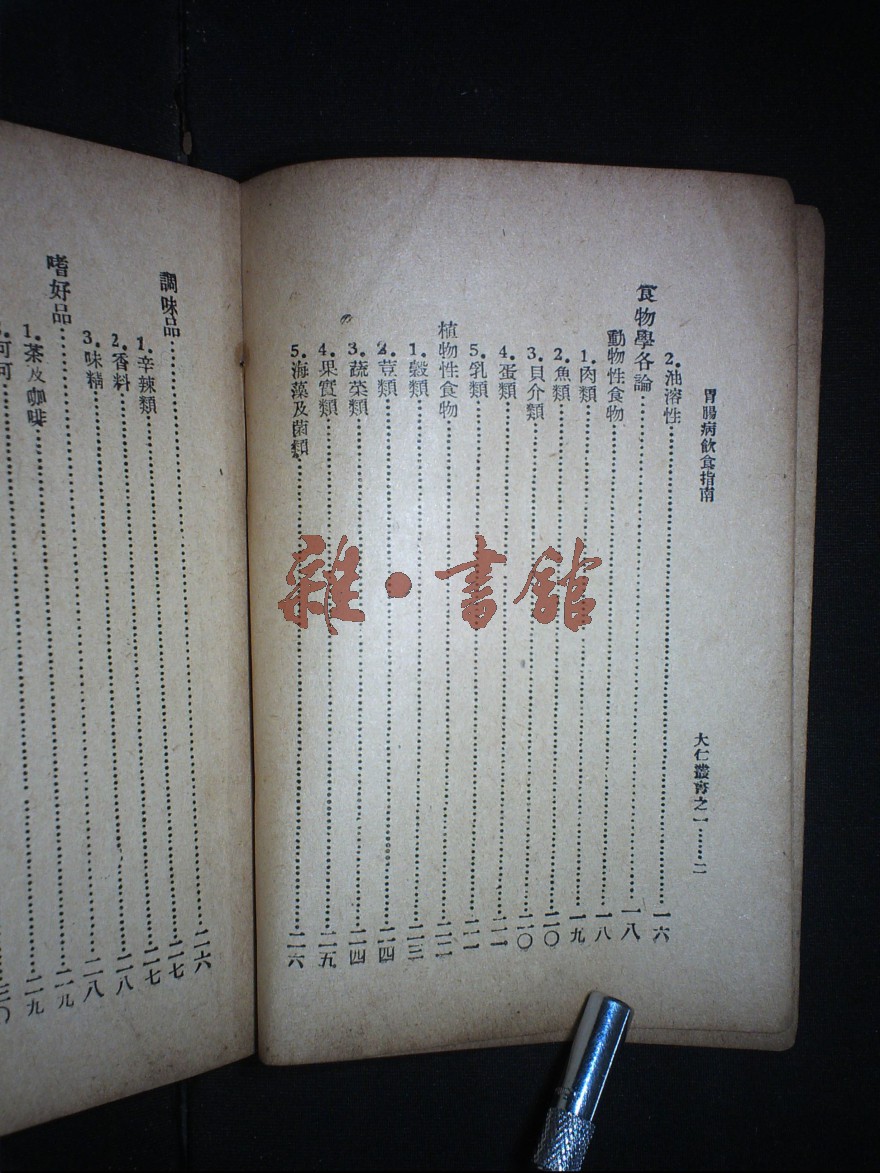 胃腸病飲食指南 大仁叢書之一……二
2.油溶性……一六
食物學各論……一八
動物性食物……一八
1.肉類……一九
2.魚類……二〇
3.貝介類……二〇
4.蛋類……二一
5.乳類……二一
植物性食物……二二
1.穀類……二三
2.荳類……二四
3.蔬菜類……二四
4.果實類……二五
5.海藻及菌類……二六
調味品……二六
1.辛辣類……二七
2.香料……二七
3.味精……二八
嗜好品……二八
1.茶及咖啡……二九
可可……二九
三〇
雜·書館